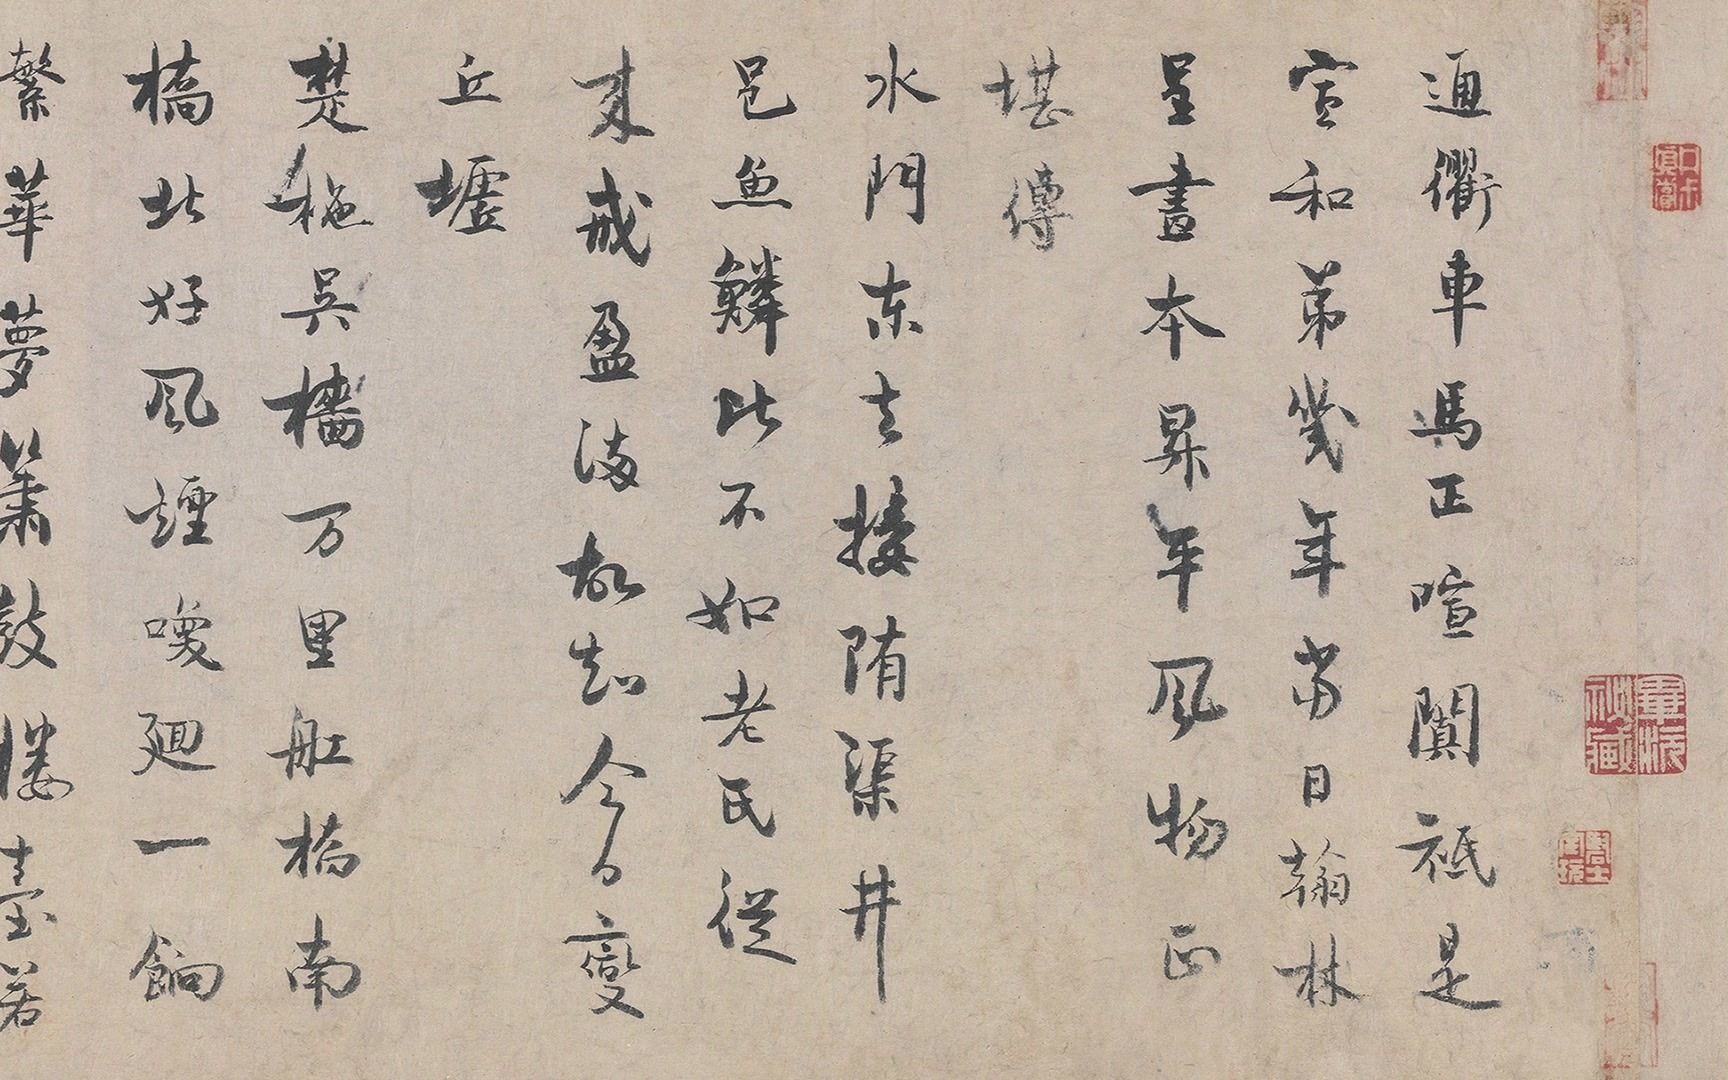 通衢車馬正喧闐祗是
宣和苐幾年當日翰林
呈畫本昇平風物正
堪傳
水門東去接隋渠井
邑魚鱗比不如老氏從
來戒盈滿故知今日變
丘墟
楚柂吳檣万里舡橋南
橋北好風煙喚廻一餉
繁華夢簫鼓樓臺若
畢沅祕藏